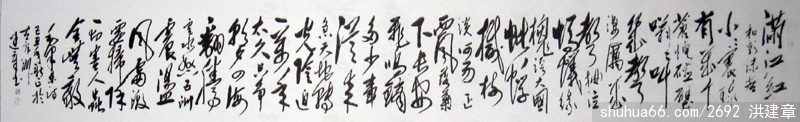 满江红
和郭沫若
小小寰球
有几个
苍蝇碰壁
嗡嗡叫
几声
凄厉几
声抽泣
蚂蚁缘
槐夸大国
蚍蜉
撼树
谈何易正
西风落叶
下长安
飞鸣镝
多少事
从来
急天地转
光阴迫
一万年
太久只争
朝夕四海
翻腾
云水怒五洲
震荡
风雷激
要扫除
一切害人虫
全无敌
shuhua66.com/2692 洪建章